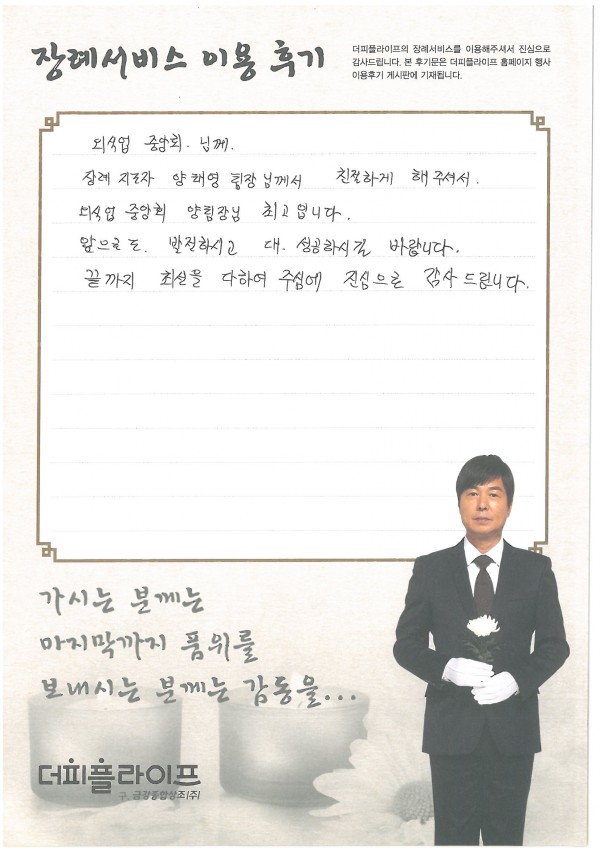 장례서비스 이용 후기
더피플라이프의 장례서비스를 이용해주셔서 진심으로
감사드립니다. 본 후기문은 더피플라이프 홈페이지 행사
이용후기 게시판에 기재됩니다.
외식업 중앙회. 님께.
장례 지도자 양해영 팀장님께서 친절하게 해주셔서.
외식업 중앙회 양팀장님 최고 입니다.
앞으로도. 발전하시고 대. 성공하시길 바랍니다.
끝까지 최선을 다하여 주심에 진심으로 감사드립니다.
가시는 분께는
마지막까지 품위를
보내시는 분께는 감동을...
더피플라이프
구. 금강종합상조(주)